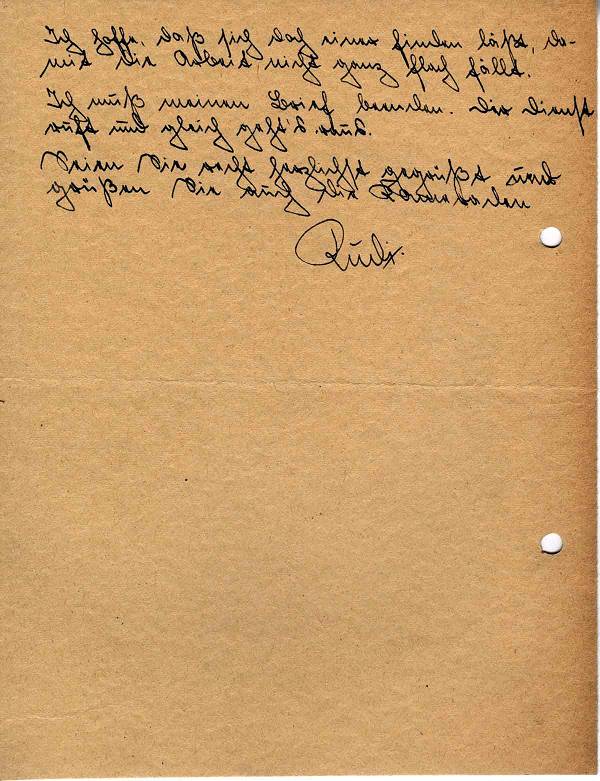 Ich hoffe, daß sich doch einer finden läßt, da-
mit die Arbeit nicht ganz flach fällt.
Ich muß meinen Brief beenden. Der Dienst
ruft und gleich geht's raus.
Seien Sie recht herzlichst gegrüßt und
grüßen Sie auch die Kameraden
Rudi.